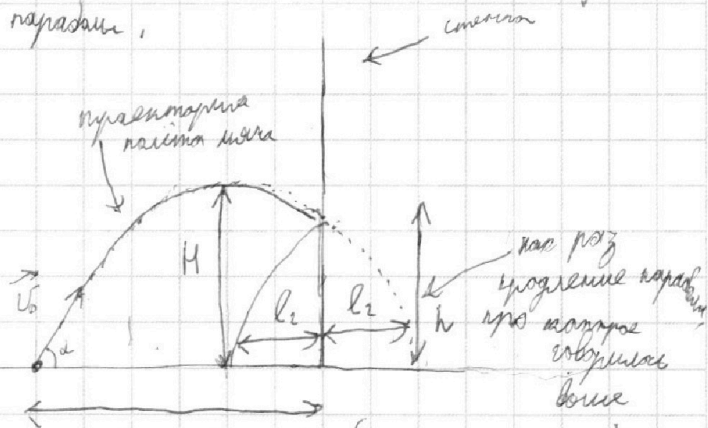 параболы,
стенка
траектория
полёта мяча
H
h
l₂
l₂
α
как раз
продление параболы,
про которое
говорилось
выше